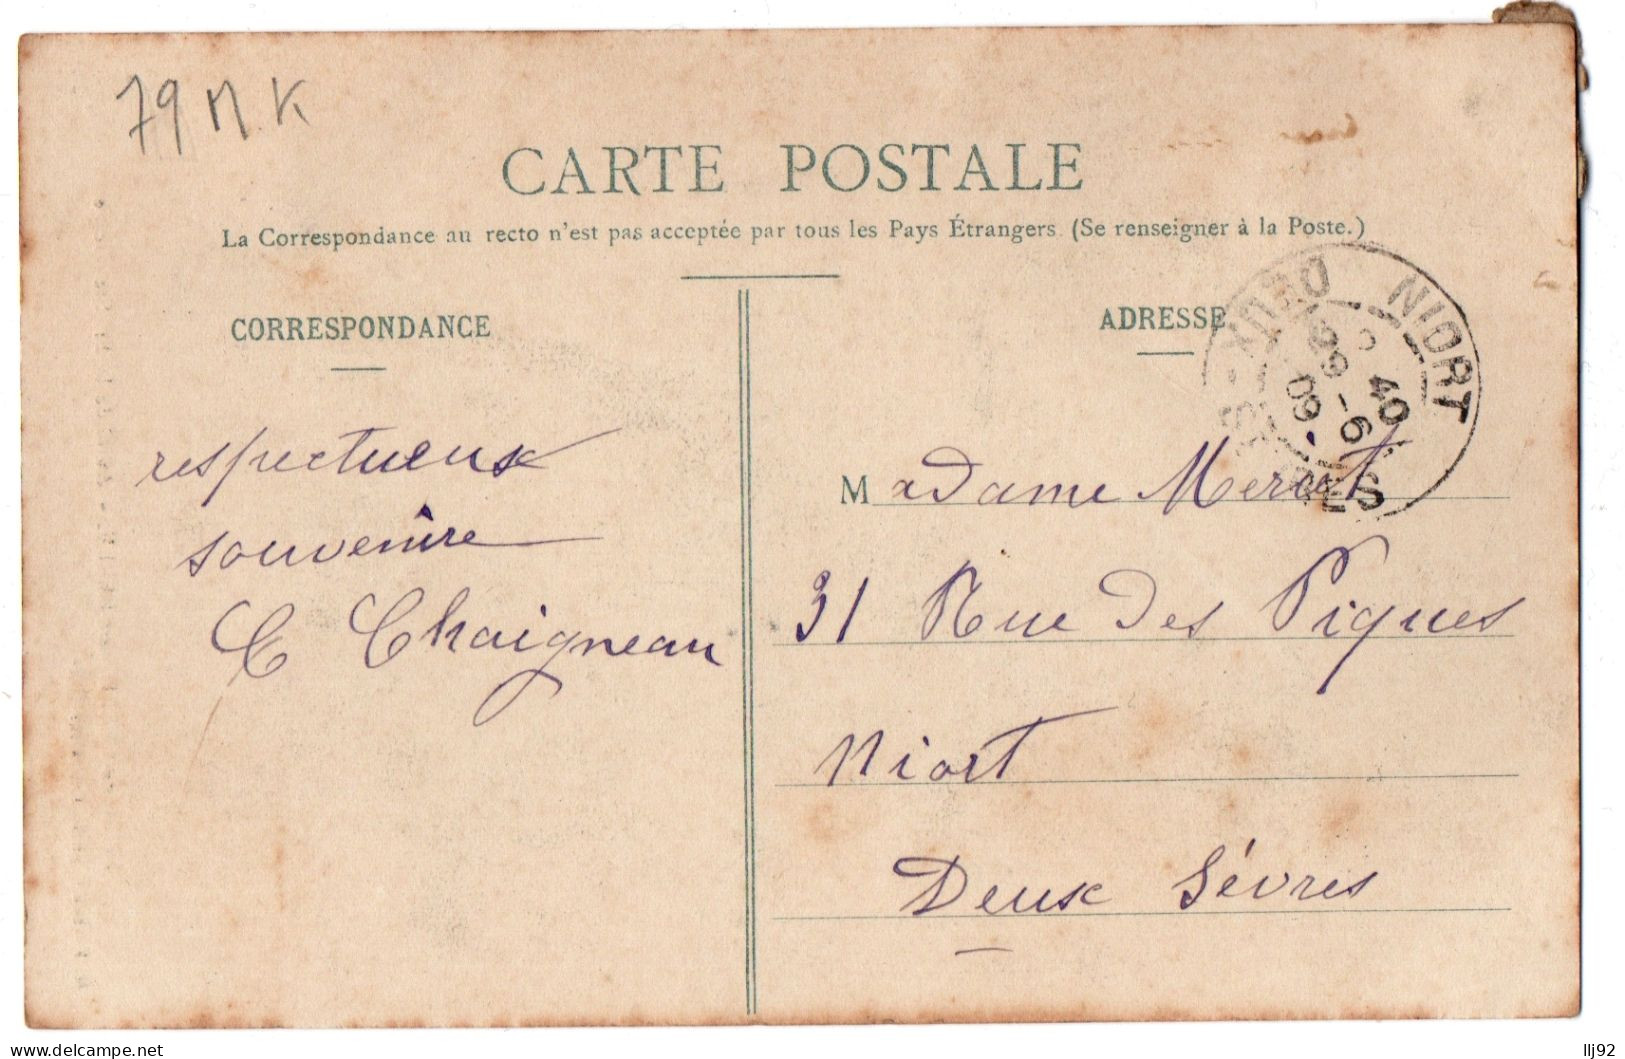 79 M K
CARTE POSTALE
La Correspondance au recto n'est pas acceptée par tous les Pays Étrangers. (Se renseigner à la Poste.)
CORRESPONDANCE
respectueux
souvenire
C Chaigneau
ADRESSE
NIORT
DEUX-SÈVRES
40
-6
09
Madame Merat
31 Rue des Piques
Niort
Deux Sèvres
www.delcampe.net
llj92